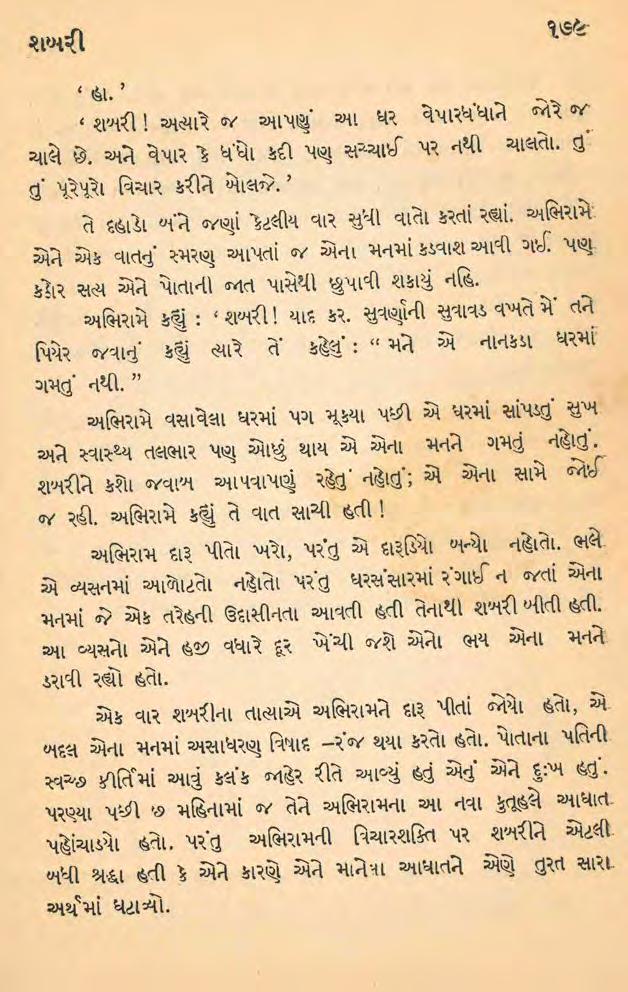 શબરી
૧૭૯
‘ હા. ’
‘ શબરી ! અત્યારે જ આપણું આ ઘર વેપારધંધાને જોરે જ
ચાલે છે. અને વેપાર કે ધંધો કદી પણ સચ્ચાઈ પર નથી ચાલતો. તું
તું પૂરેપૂરો વિચાર કરીને બોલજે. ’
તે દહાડો બંને જણાં કેટલીય વાર સુધી વાતો કરતાં રહ્યાં. અભિરામે
એને એક વાતનું સ્મરણ આપતાં જ એના મનમાં કડવાશ આવી ગઈ. પણ
કઠોર સત્ય એને પોતાની જાત પાસેથી છુપાવી શકાયું નહિ.
અભિરામે કહ્યું : ‘ શબરી ! યાદ કર. સુવર્ણાની સુવાવડ વખતે મેં તને
પિયેર જવાનું કહ્યું ત્યારે તેં કહેલું : “ મને એ નાનકડા ઘરમાં
ગમતું નથી. ”
અભિરામે વસાવેલા ઘરમાં પગ મૂકયા પછી એ ઘરમાં સાંપડતું સુખ
અને સ્વાસ્થ્ય તલભાર પણ ઓછું થાય એ એના મનને ગમતું નહોતું.
શબરીને કશો જવાબ આપવાપણું રહેતું નહોતું; એ એના સામે જોઈ
જ રહી. અભિરામે કહ્યું તે વાત સાચી હતી !
અભિરામ દારૂ પીતો ખરો, પરંતુ એ દારૂડિયો બન્યો નહોતો. ભલે
એ વ્યસનમાં આળોટતો નહોતો પરંતુ ઘરસંસારમાં રંગાઈ ન જતાં એના
મનમાં જે એક તરેહની ઉદાસીનતા આવતી હતી તેનાથી શબરી બીતી હતી.
આ વ્યસનો એને હજી વધારે દૂર ખેંચી જશે એનો ભય એના મનને
ડરાવી રહ્યો હતો.
એક વાર શબરીના તાત્યાએ અભિરામને દારૂ પીતાં જોયો હતો, એ
બદલ એના મનમાં અસાધરણ વિષાદ –રંજ થયા કરતો હતો. પોતાના પતિની
સ્વચ્છ કીર્તિમાં આવું કલંક જાહેર રીતે આવ્યું હતું એનું એને દુઃખ હતું.
પરણ્યા પછી છ મહિનામાં જ તેને અભિરામના આ નવા કુતૂહલે આઘાત
પહોંચાડયો હતો. પરંતુ અભિરામની વિચારશક્તિ પર શબરીને એટલી
બધી શ્રદ્ધા હતી કે એને કારણે એને માનેત્રા આઘાતને એણે તુરત સારા
અર્થમાં ઘટાવ્યો.